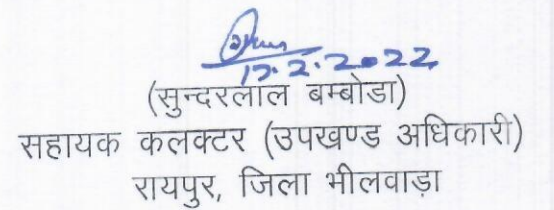 17.2.2022
(सुन्दरलाल बम्बोडा)
सहायक कलक्टर (उपखण्ड अधिकारी)
रायपुर, जिला भीलवाड़ा